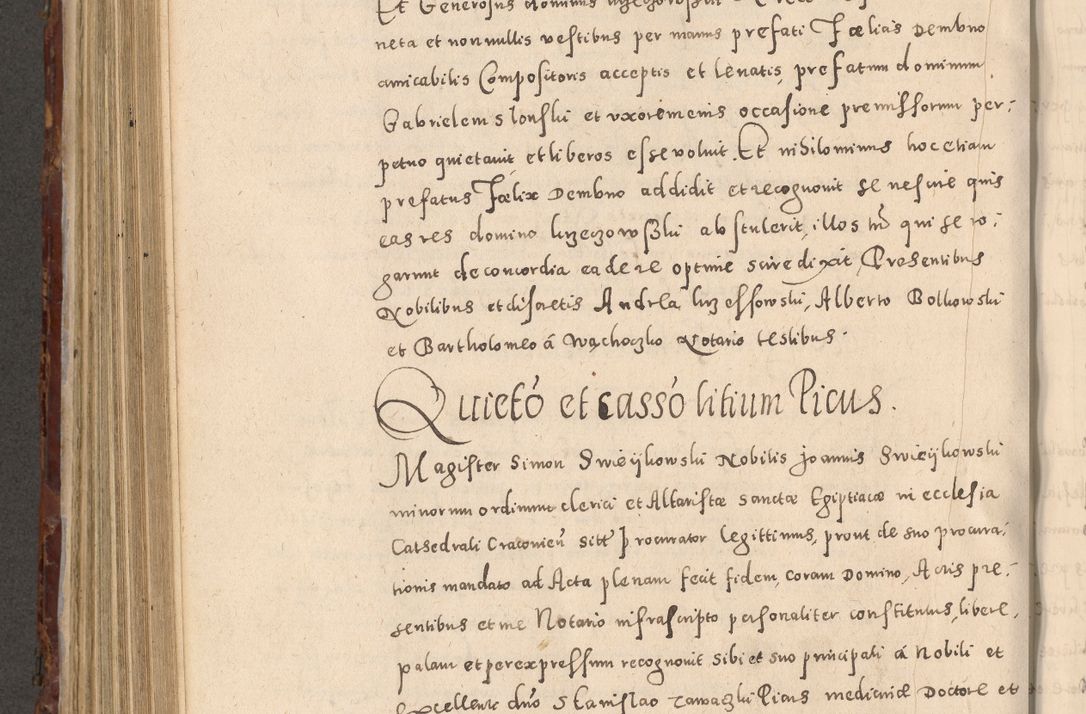 Et Generosus dominus
neta et non nullis vestibus per manus prefati Fœlias Dembno
amicabilis Compositoris acceptis et levatis, prefatum dominum
Gabrielem Slonski et uxorem eius occasione premissorum per:
petuo quietauit et liberos esse voluit. Et nihilominus hoc etiam
prefatus Fœlix Dembno addidit et recognouit se nescire quis
eas res domino krzeczowski abstulerit, illos tn̄ qui se ro:
garunt de concordia ea de re optime scire dixit, Presentibus
Nobilibus et discretis Andrea krzessowski, Alberto Bolkowski
et Bartholomeo á Wąchoczko Notario testibus.
Quietó et cassó litium Picus.
Magister Simon Swieijkowski Nobilis Joannis Swieijkowski
minorum ordinum clerici et Altaristæ Sanctæ Egiptiacæ in ecclesia
Cathedrali Cracouien̄ sitæ Procurator legittimus, prout de suo procura:
tionis mandato ad Acta plenam fecit fidem, coram Domino, Actis pre:
sentibus et me Notario infrascripto personaliter constitutus, libere,
palam et per expressum recognouit sibi et suo principali á Nobili et
Excellente dn̄o Stanislao Zawaczki Picus medicinæ Doctore et